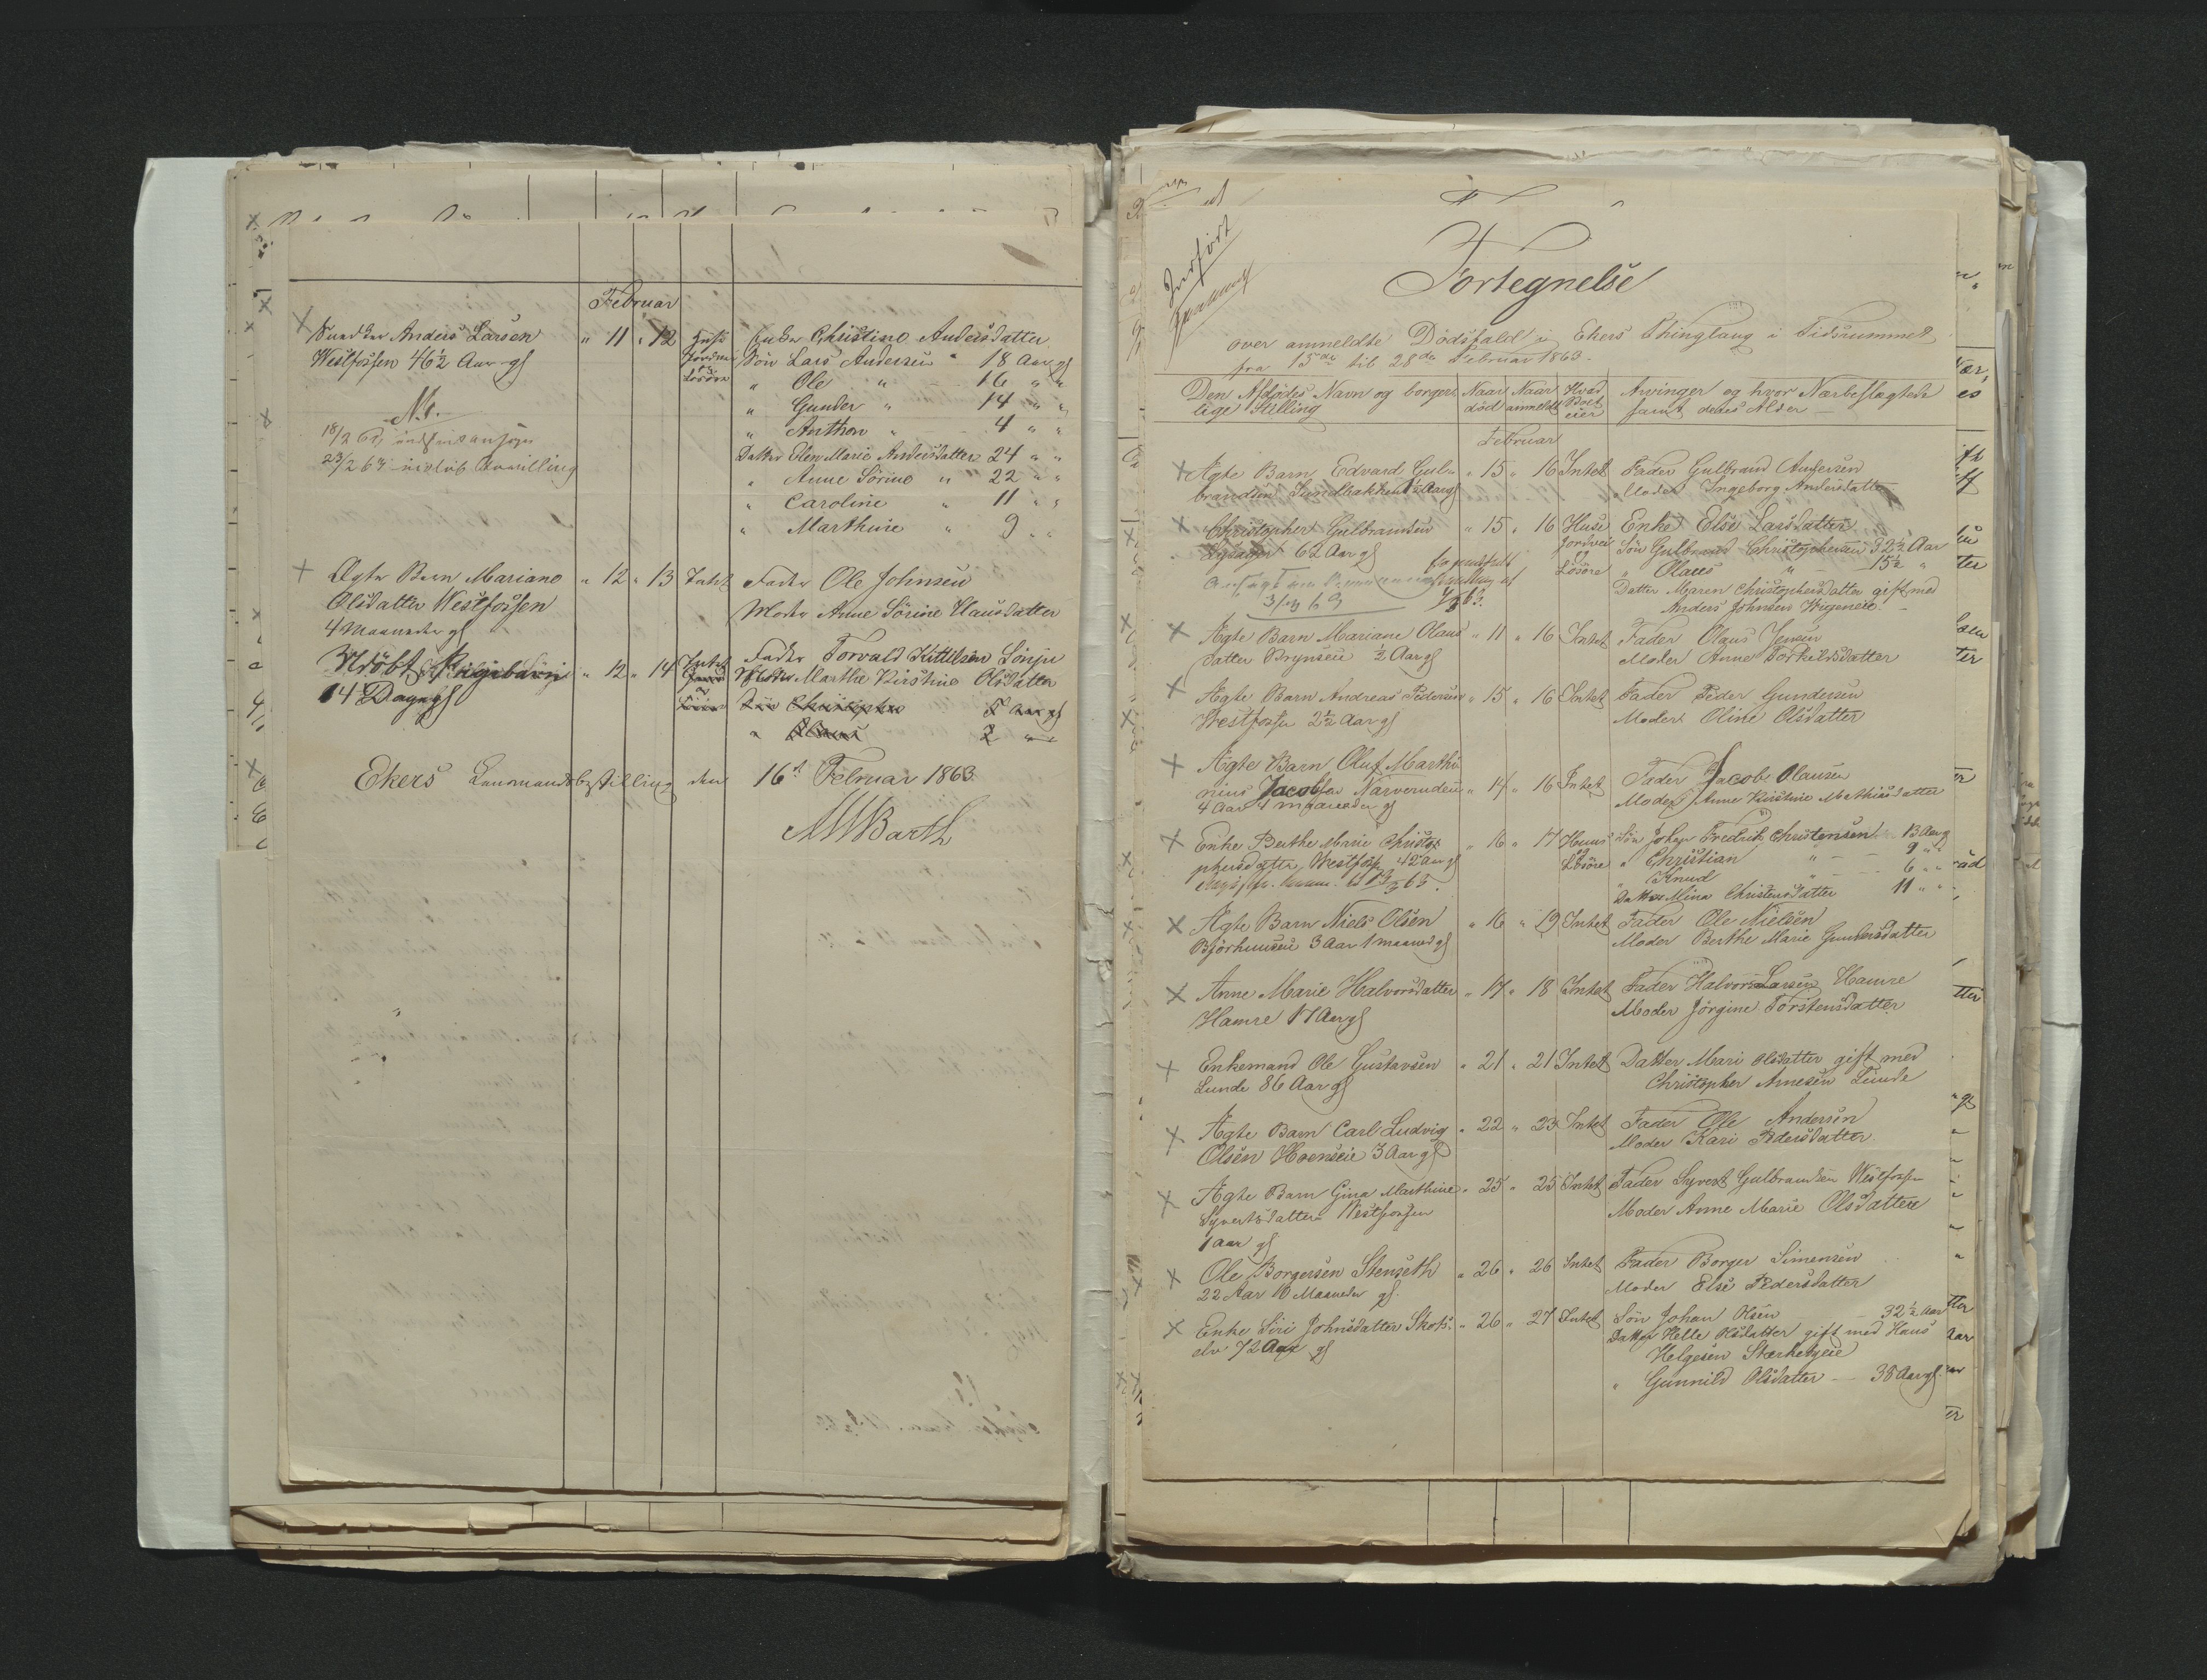 Februar
Anders Larsen " 11 " 12 Huse Enke Christine Andersdatter
Westfossen 46½ Aar gl Jordvei Søn Lars Andersen 18 Aar gl
og Løsøre " Ole " 16 " "
" Gunder " 14 " "
" Anthon " 4 " "
Datter Elen Marie Andersdatter 24 " "
" Anne Sörine " 22 " "
" Caroline " 11 " "
" Marthine " 9 " "
18/2 63
23/2 63
Ægte Barn Mariane " 12 " 13 Intet Fader Ole Johnsen
Olsdatter Westfossen Moder Anne Sörine Clausdatter
4 Maaneder gl
Udöbt Pigebarn " 12 " 14 Intet Fader Torvald Kittelsen Lonju
14 Dage gl Moder Marthe Kirstine Olsdatter
Søn Christopher 5 Aar gl
" Olaus 2 " "
Ekers Lensmandsbestilling den 16d Februar 1863.
MWBarth
Indført
Fortegnelse
over anmeldte Dödsfald i Ekers Thinglaug i Tidsrummet
fra 15de til 28de Februar 1863.
Den Afdødes Navn og borger- Naar Naar Hvad Arvinger og hvor Nærbeslægtede
lige Stilling død anmeldt Boet eier samt deres Alder
Februar
Ægte Barn Edvard Gul- " 15 " 16 Intet Fader Gulbrand Andersen
brandsen Sundbakken 1½ Aar gl Moder Ingeborg Andersdatter
Christopher Gulbrandsen " 15 " 16 Huse Enke Else Larsdatter
62 Aar gl Jordvei Søn Gulbrand Christophersen 32½ Aar
og Løsøre " Olaus " 15½ "
Datter Maren Christophersdatter gift med
Anders Johnsen
Ægte Barn Mariane Olaus- " 11 " 16 Intet Fader Olaus Jensen
datter Brynseie ½ Aar gl Moder Anne Torkildsdatter
Ægte Barn Andreas Pedersen " 15 " 16 Intet Fader Peder Gundersen
Westfossen 2½ Aar gl Moder Oline Olsdatter
Ægte Barn Oluf Marthi-
nius Jacobsen Narverudeie " 14 " 16 Intet Fader Jacob Olausen
4 Aar 4 maaneder gl Moder Anne Kirstine Mathiasdatter
Enke Berthe Marie Christo- " 16 " 17 Huus Søn Johan Fredrik Christensen 13 Aar gl
phersdatter Westfoss 42 Aar gl og " Christian " 9 " "
Løsøre " Knud " 6 " "
Datter Mina Christensdatter 11 " "
Ægte Barn Niels Olsen " 16 " 19 Intet Fader Ole Nielsen
Bjørhuuseie 3 Aar 1 maaned gl Moder Berthe Marie Gundersdatter
Anne Marie Halvorsdatter " 17 " 18 Intet Fader Halvor Larsen Hamre
Hamre 17 Aar gl Moder Jörgine Torstensdatter
Enkemand Ole Gustavsen " 21 " 21 Intet Datter Mari Olsdatter gift med
Lunde 86 Aar gl Christopher Arnesen Lunde
Ægte Barn Carl Ludvig " 22 " 23 Intet Fader Ole Andersen
Olsen Horenseie 3 Aar gl Moder Kari Pedersdatter
Ægte Barn Gina Marthine " 25 " 25 Intet Fader Syvert Gulbrandsen Westfossen
Syvertsdatter Westfossen Moder Anne Marie Olsdatter
1 Aar gl
Ole Borgersen Stenseth " 26 " 26 Intet Fader Borger Simensen
22 Aar 10 Maaneder gl. Moder Else Pedersdatter
Enke Siri Johnsdatter Skots- " 26 " 27 Intet Søn Johan Olsen 32½ Aar
elv 72 Aar gl Datter Helle Olsdatter gift med Hans
Helgesen
" Gunnild Olsdatter 38 Aar gl.